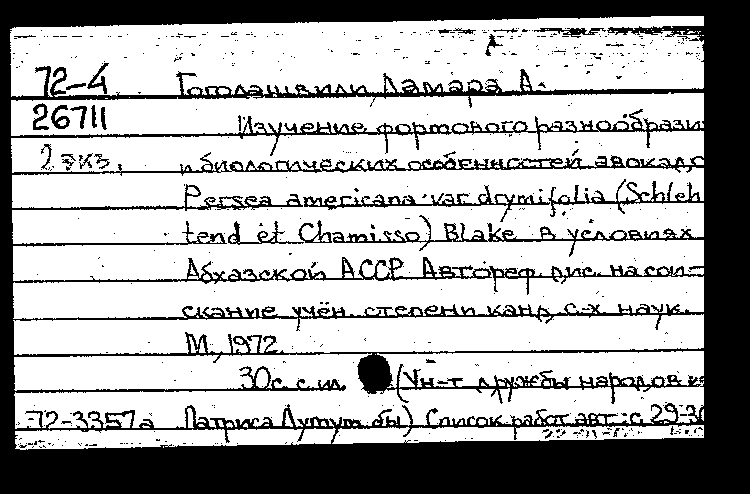 72-4 Гоголашвили, Ламара А.
26711 Изучение формового разнообрази
2 экз. и биологических особенностей авокадо
Persea americana var drymifolia (Schleh
tend et Chamisso) Blake в условиях
Абхазской АССР. Автореф. дис. на соис-
скание учён. степени канд. с-х. наук.
М., 1972.
30 с. с ил. (Ун-т дружбы народов
72-3357а Патриса Лумумбы) Список работ авт.: с. 29-30